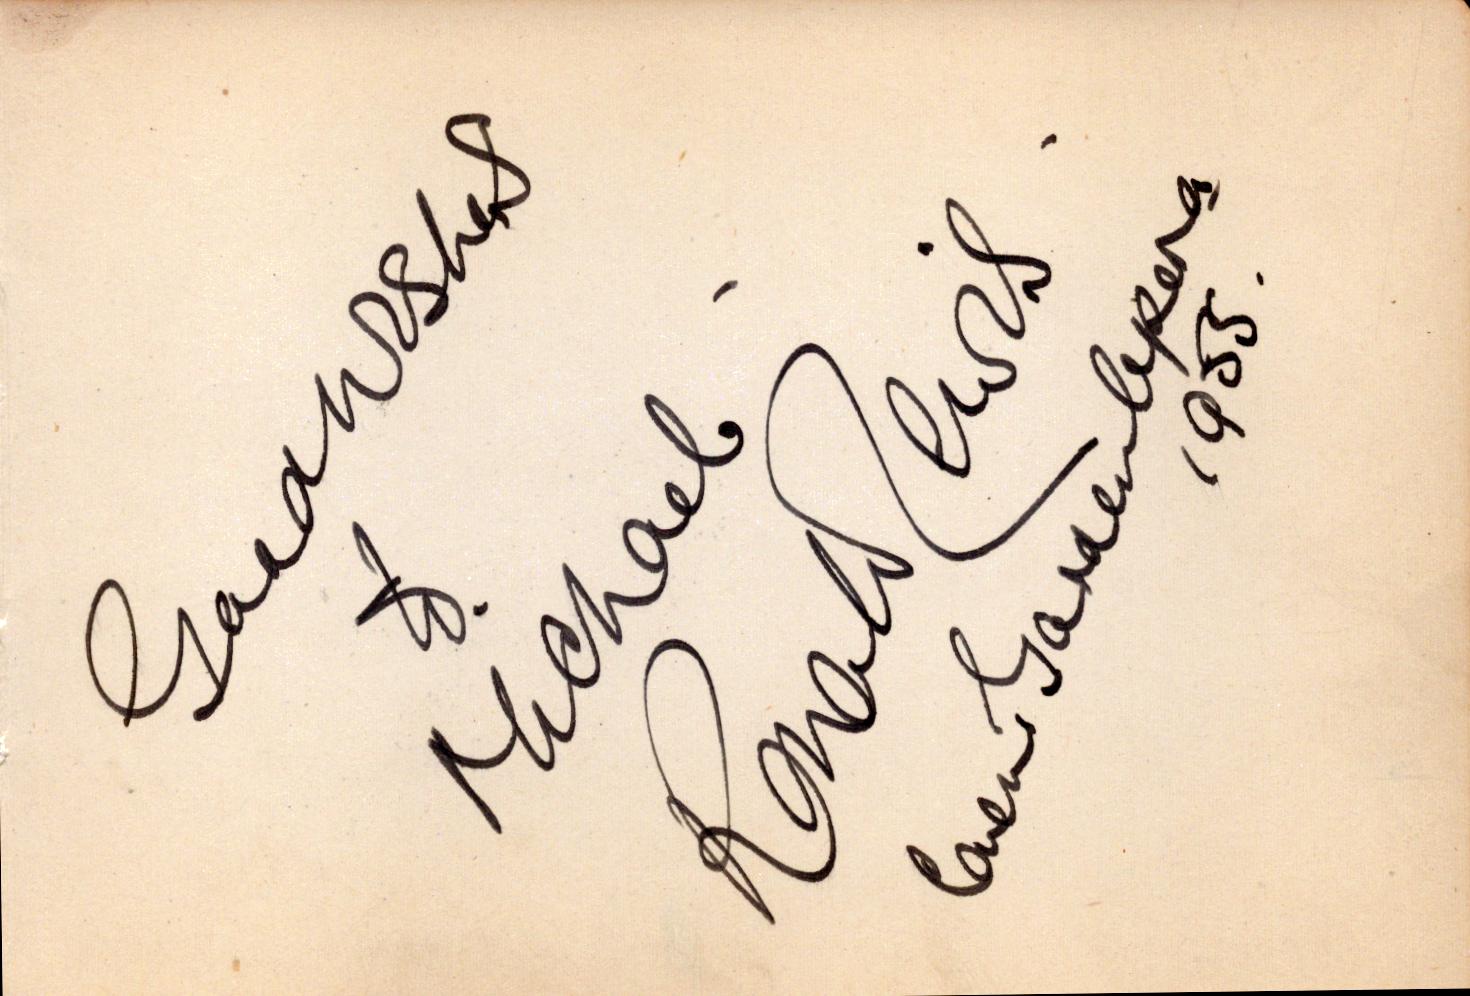 Good Wishes
to.
Michael
Ronald Lewis.
Covent Garden Opera
1955.